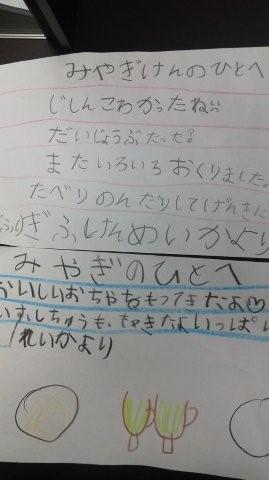 みやぎけんのひとへ
じしんこわかったね!!
だいじょうぶだった?
またいろいろおくりました。
たべりのんだりしてげんきに
ぎふけんめいかより
みやぎのひとへ
おいしいおちゃをもってきたよ
しちゅうも、もってきたよいっぱい
れいかより